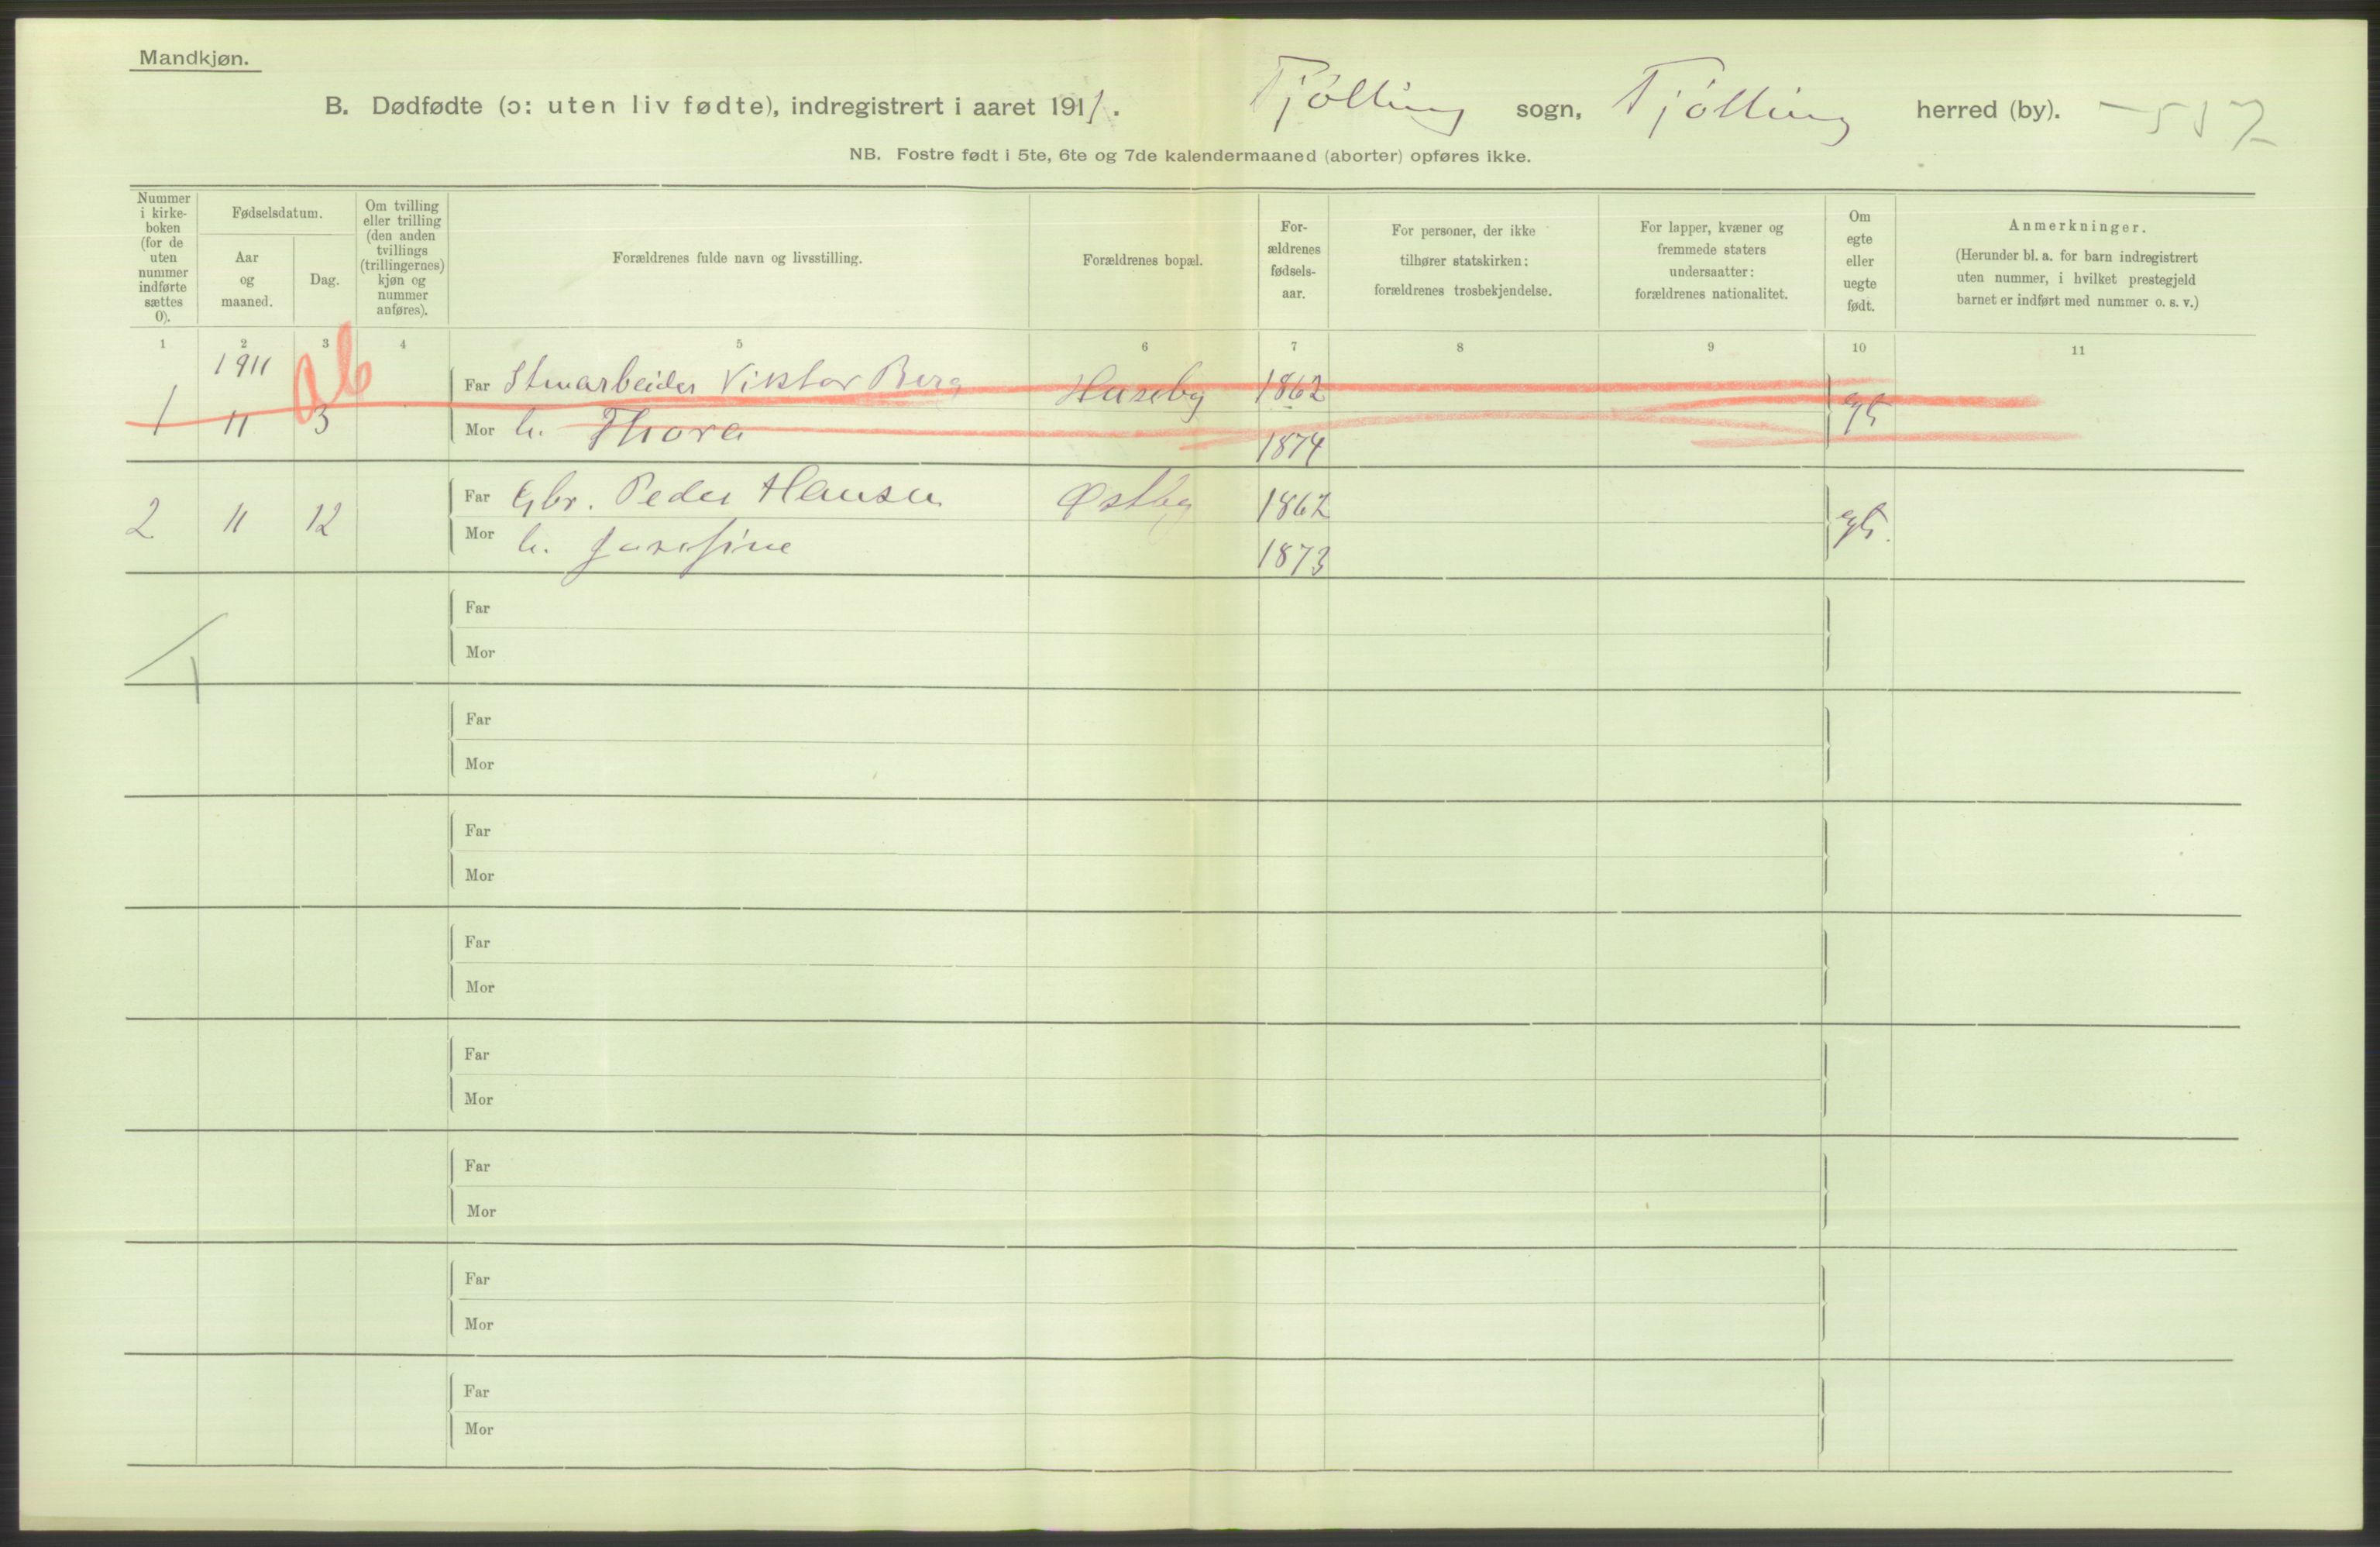 Mandkjøn.
B. Dødfødte (ɔ: uten liv fødte), indregistrert i aaret 1911. Tjølling sogn, Tjølling herred (by). 
NB. Fostre født i 5te, 6te og 7de kalendermaaned (aborter) opføres ikke.
Nummer i kirke-boken (for de uten nummer indførte sættes 0).
Fødselsdatum.
Aar og maaned.
Dag.
Om tvilling eller trilling (den anden tvillings (trillingernes) kjøn og nummer anføres).
Forældrenes fulde navn og livsstilling.
Forældrenes bopæl.
For-ældrenes fødsels-aar.
For personer, der ikke tilhører statskirken: forældrenes trosbekjendelse.
For lapper, kvæner og fremmede staters undersaatter: forældrenes nationalitet.
Om egte eller uegte født.
Anmerkninger.
(Herunder bl. a. for barn indregistrert uten nummer, i hvilket prestegjeld barnet er indført med nummer o. s. v.)
1 2 3 4 5 6 7 8 9 10 11
1911 ab
1 11 3 Far Stenarbeider Viktor Berg Huseby 1862 egte
Mor h. Thora 1874
2 11 12 Far Gbr. Peder Hansen Østby 1862 egte
Mor h. Josefine 1873
Far
Mor
1
Far
Mor
Far
Mor
Far
Mor
Far
Mor
Far
Mor
Far
Mor
Far
Mor